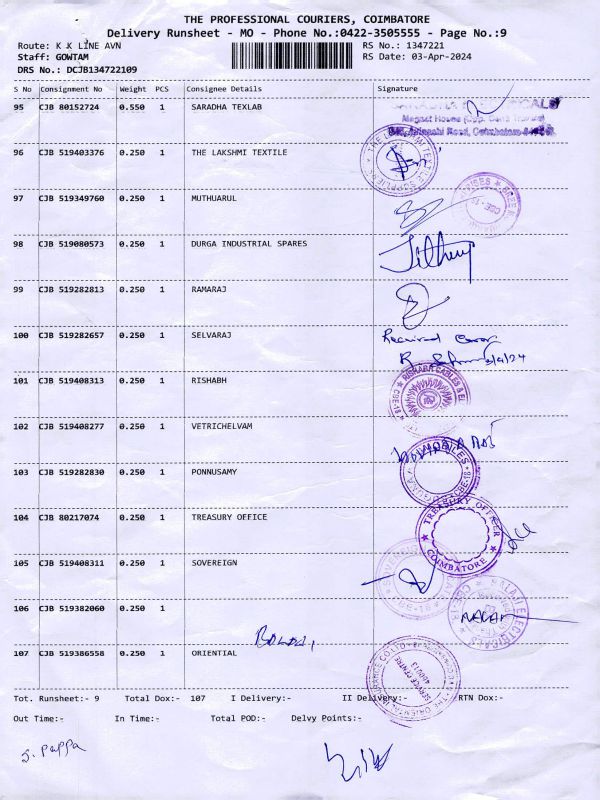 THE PROFESSIONAL COURIERS, COIMBATORE
Delivery Runsheet - MO - Phone No.:0422-3505555 - Page No.:9
Route: K K LINE AVN
RS No.: 1347221
Staff: GOWTAM
RS Date: 03-Apr-2024
DRS No.: DCJB134722109
S No Consignment No Weight PCS Consignee Details Signature
95 CJB 80152724 0.550 1 SARADHA TEXLAB
96 CJB 519403376 0.250 1 THE LAKSHMI TEXTILE
THE LAKSHMI TEXTILE SUPPLIERS
97 CJB 519349760 0.250 1 MUTHUARUL
98 CJB 519080573 0.250 1 DURGA INDUSTRIAL SPARES
99 CJB 519282813 0.250 1 RAMARAJ
100 CJB 519282657 0.250 1 SELVARAJ
Received
101 CJB 519408313 0.250 1 RISHABH
RISHABH CABLES &
102 CJB 519408277 0.250 1 VETRICHELVAM
103 CJB 519282830 0.250 1 PONNUSAMY
104 CJB 80217074 0.250 1 TREASURY OFFICE
TREASURY OFFICER
COIMBATORE
105 CJB 519408311 0.250 1 SOVEREIGN
106 CJB 519382060 0.250 1
BALAJI ELECTRICALS
107 CJB 519386558 0.250 1 ORIENTIAL
SERVICE CENTRE
Tot. Runsheet:- 9 Total Dox:- 107 I Delivery:- II Delivery:- RTN Dox:-
Out Time:- In Time:- Total POD:- Delvy Points:-
S. Pappa